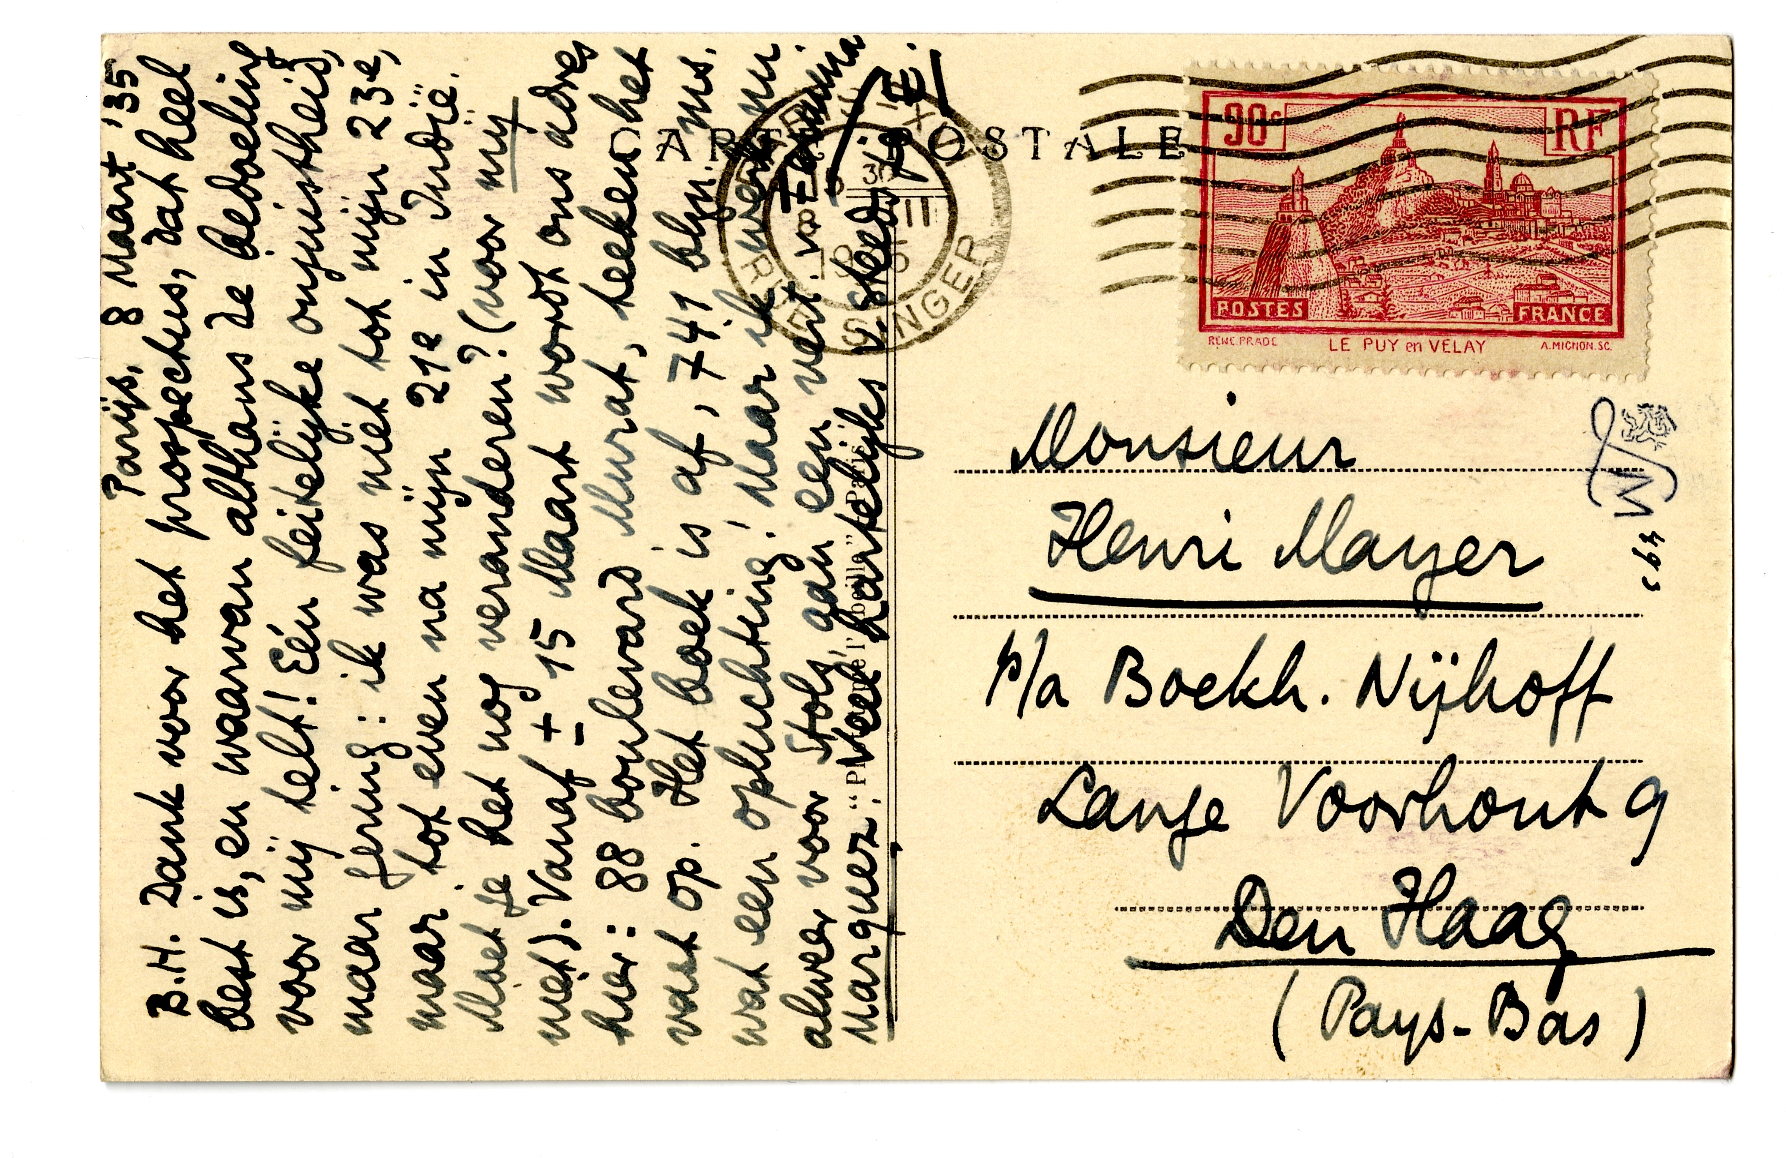 Parijs, 8 Maart '35
B.H. Dank voor het prospectus, dat heel
best is, en waarvan althans de bedoeling
voor mij telt! Eén feitelijke onjuistheid,
maar gering: ik was niet tot mijn 23e,
maar tot even na mijn 21e in Indië.
Moet je het nog veranderen? (voor mij
niet). Vanaf ± 15 Maart wordt ons adres
hier: 88 boulevard Murat, teeken het
vast op. Het boek is af, 741 blz. ms.
wat een opluchting! Maar ik werk nu
alweer voor Stols, aan een vert. v. Larminna
Marquez. Veel hartelijks v. steeds je
E.
CARTE POSTALE
16 30
8 III
1935
SINGER
90c
RF
POSTES
FRANCE
RENE.PRADE
LE PUY en VELAY
A.MIGNON.SC.
Monsieur
Henri Mayer
p/a Boekh. Nijhoff
Lange Voorhout 9
Den Haag
(Pays-Bas)
LM